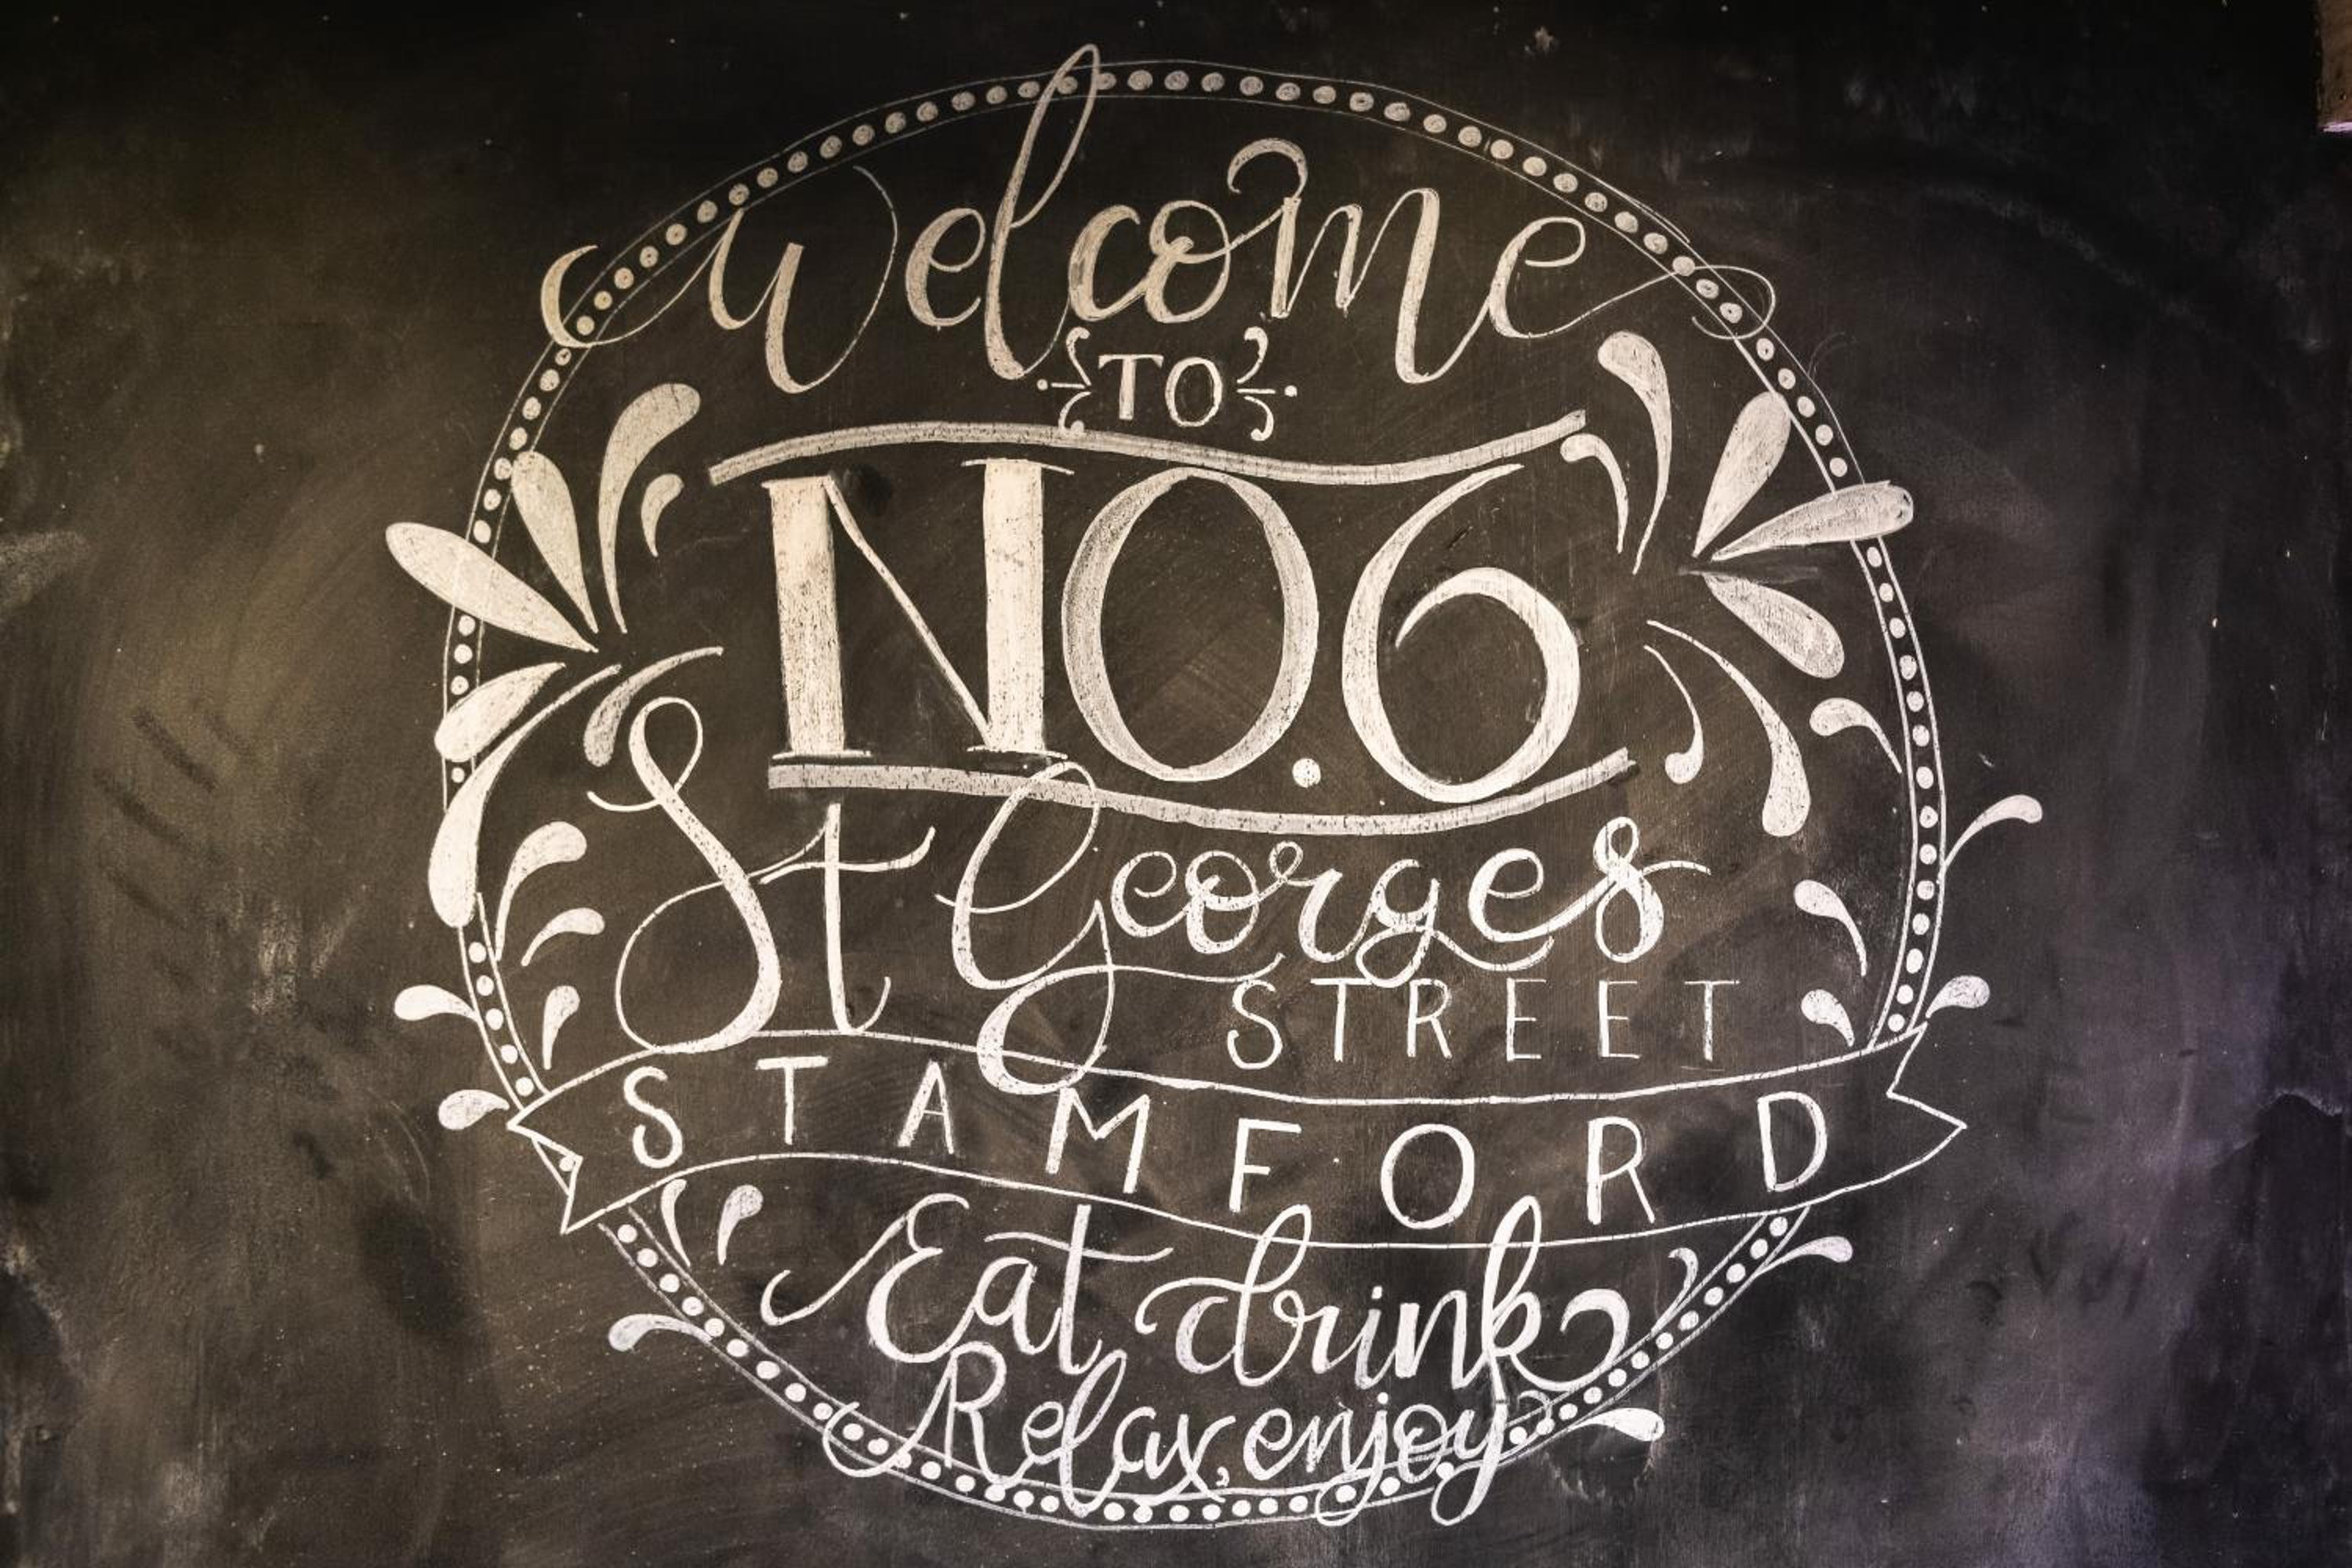 Welcome
TO
NO.6
St Georges
STREET
STAMFORD
Eat drink
Relax, enjoy